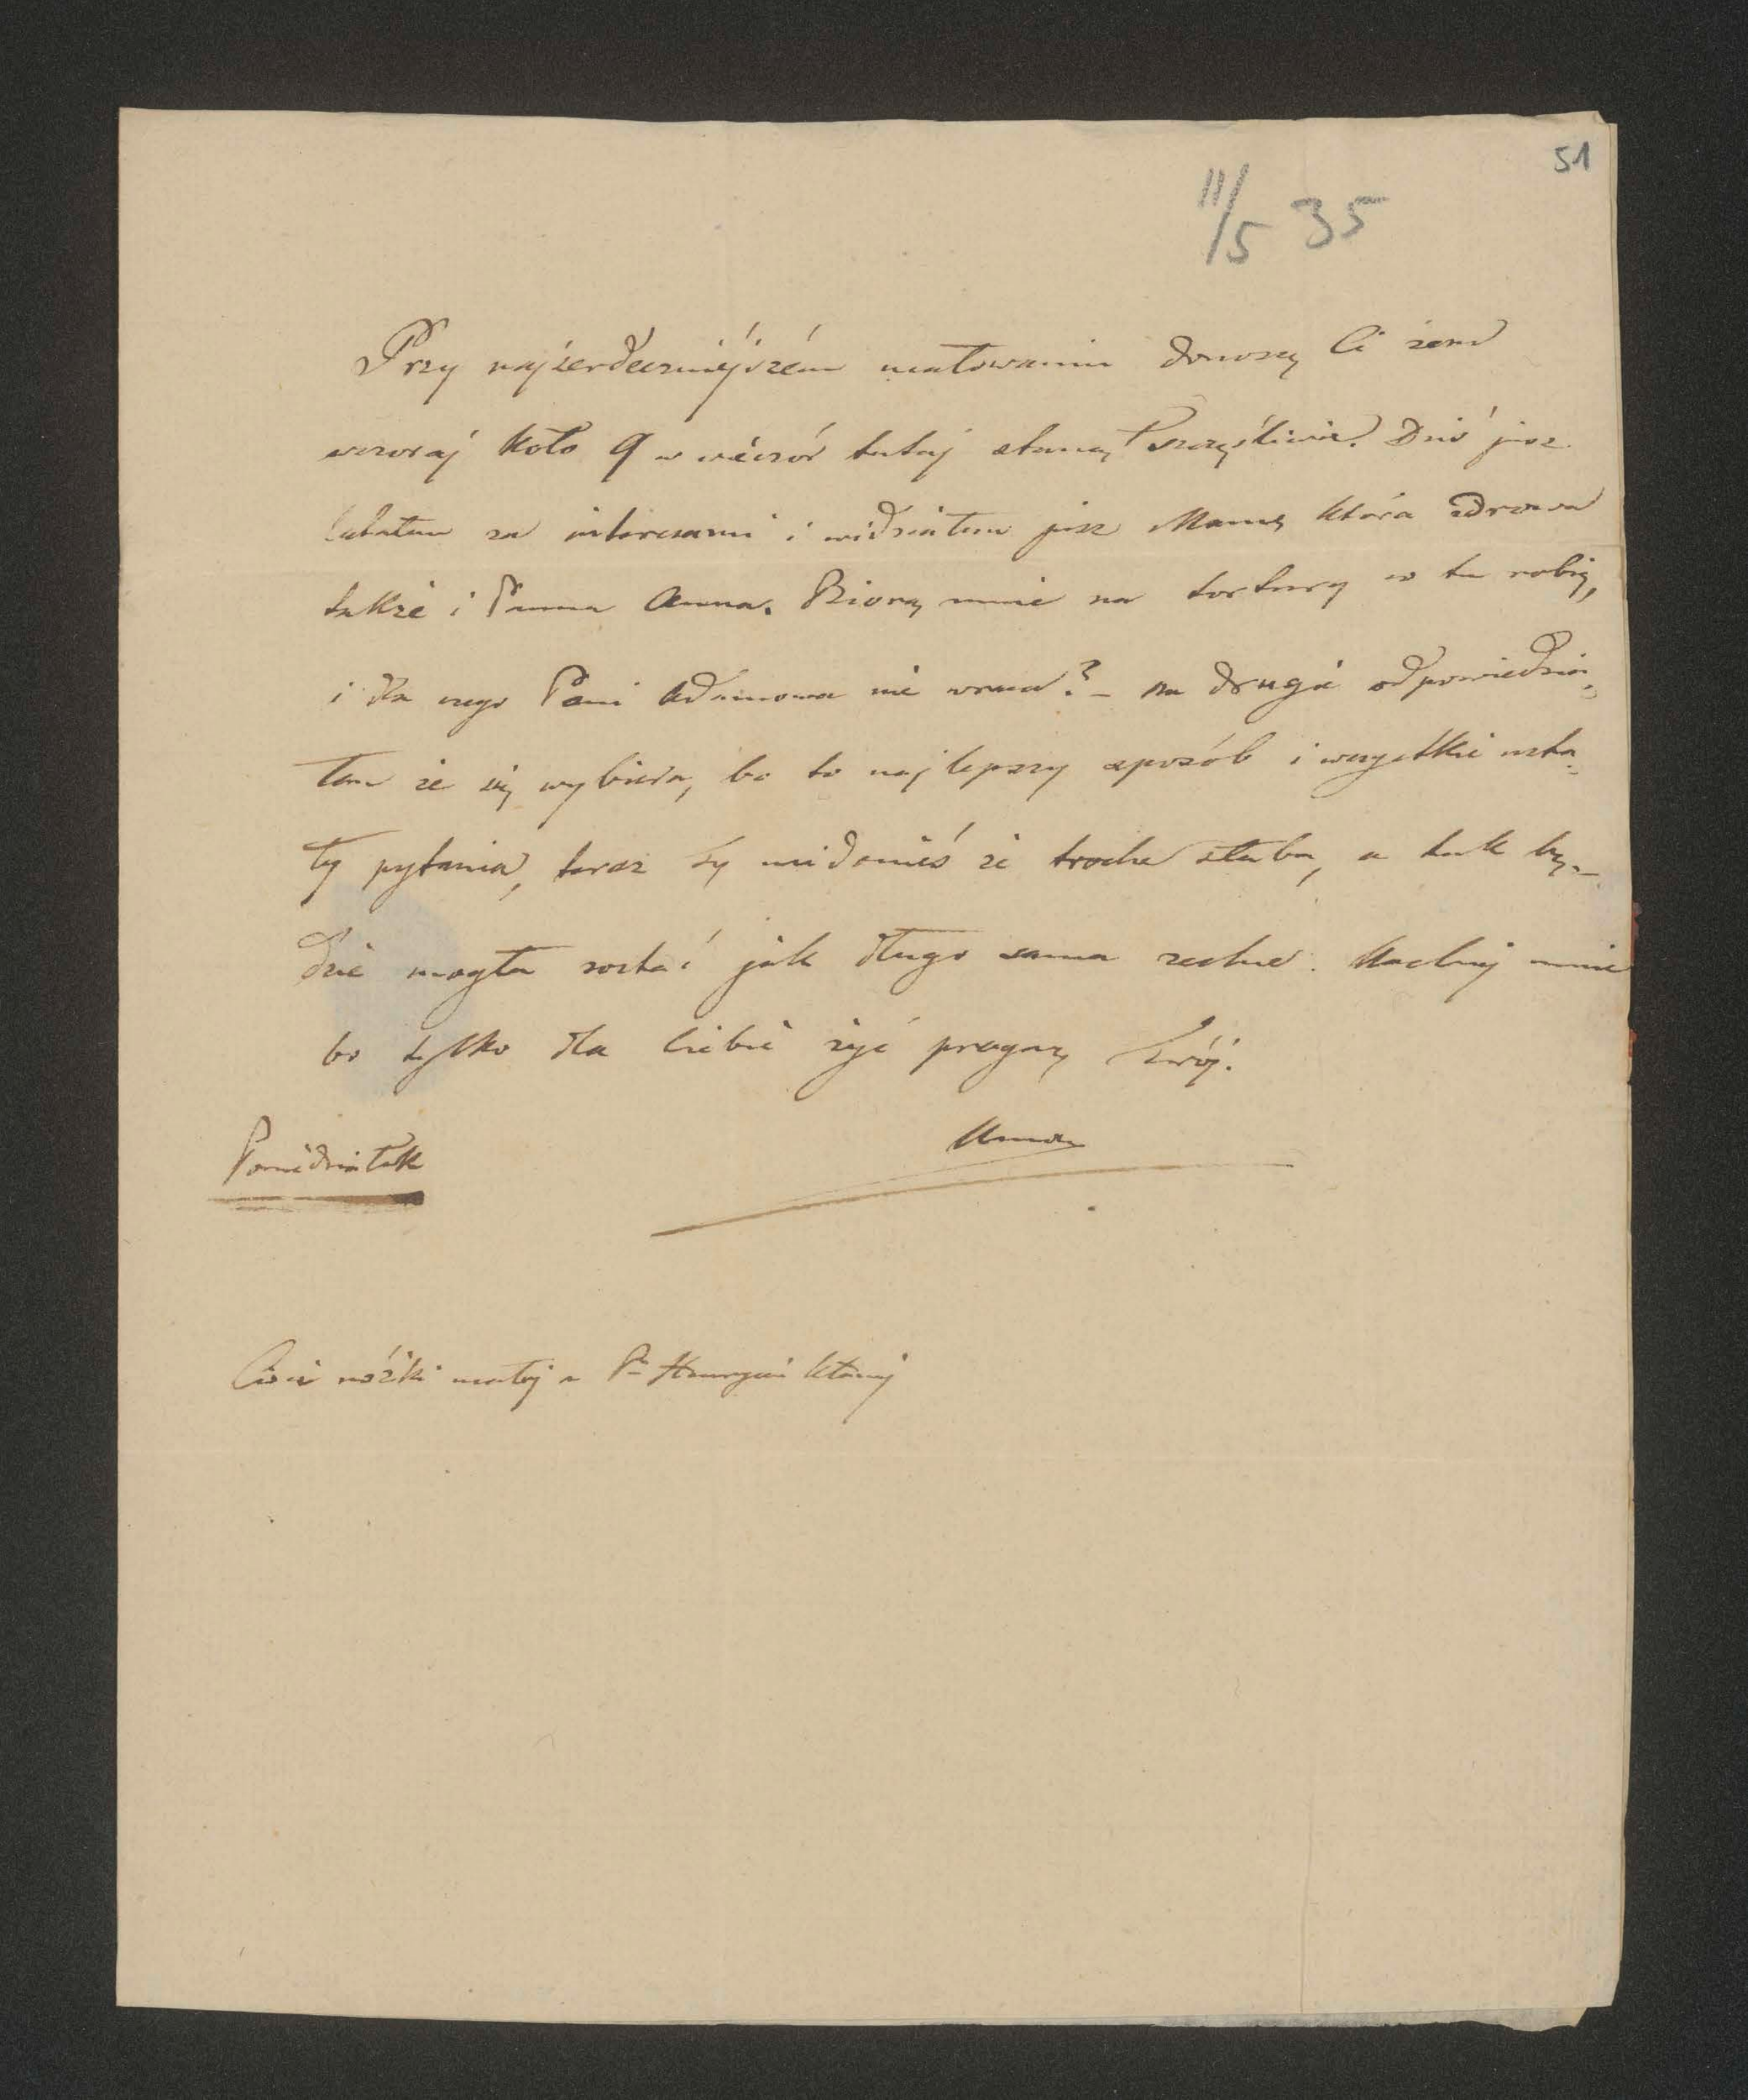 51
11/5 35
Przy najserdeczniéjszém ucałowaniu donoszę Ci żem
wczoraj koło 9 w wieczór tutaj stanął szczęśliwie. Dziś jusz
latałem za interesami i widziałem jusz Mamę która zdrowa
także i Panna Anna. Biorą mnie na tortury co tu robię,
i dla czego Pani Adamowa nie wraca? – na drugie odpowiedzia=
łem że się wybiera, bo to najlepszy sposób i wszystkie usta=
ły pytania, teraz by wiedzieć że troche słaba, a tak bę=
dzie mogła zostać jak długo sama zechce. Kochaj mnie
bo tylko dla Ciebie żyć pragnę Twój.
Adam
Poniedziałek
Ciesie nóżki małej a P. Henryci kłaniaj